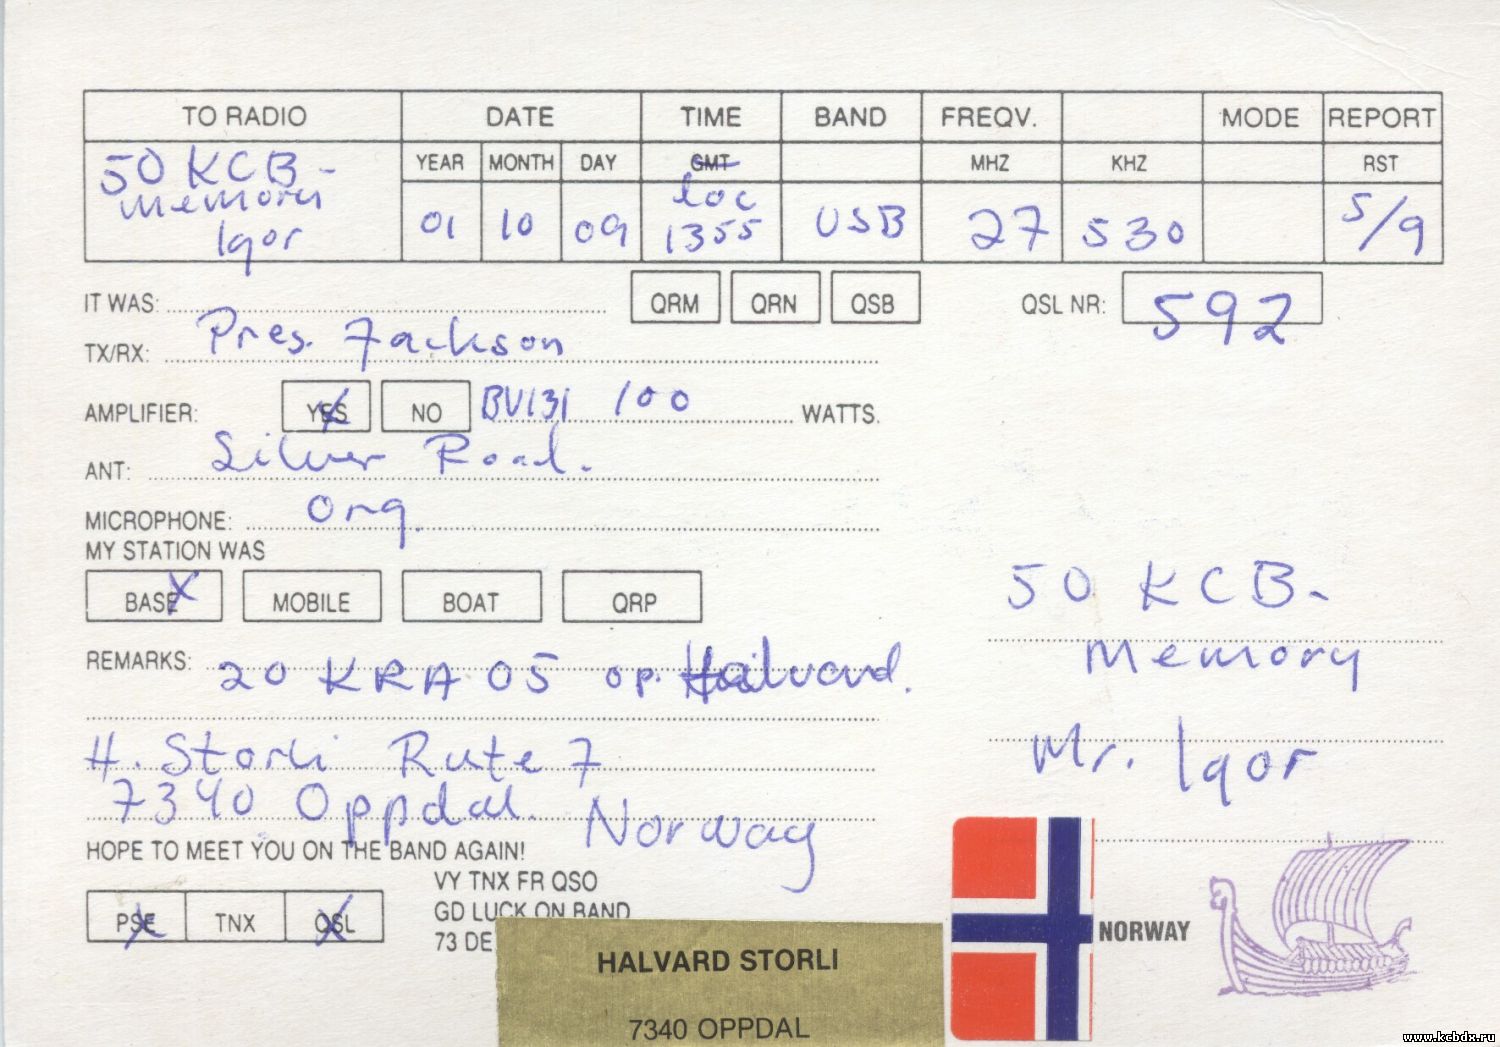 TO RADIO DATE TIME BAND FREQV. MODE REPORT
YEAR MONTH DAY GMT MHZ KHZ RST
50 KCB-
memory
Igor
01 10 09 loc 1355 USB 27 530 5/9
IT WAS: QRM QRN QSB QSL NR: 592
TX/RX: Pres. Jackson
AMPLIFIER: YES NO BV131 100 WATTS.
ANT: Silver Road.
MICROPHONE: Org.
MY STATION WAS
BASE MOBILE BOAT QRP
REMARKS: 20 KRA 05 op. Halvard.
H. Storli Rute 7
7340 Oppdal. Norway
HOPE TO MEET YOU ON THE BAND AGAIN!
PSE TNX QSL
VY TNX FR QSO
GD LUCK ON BAND
73 DE
HALVARD STORLI
7340 OPPDAL
50 KCB-
Memory
Mr. Igor
NORWAY
www.kcbdx.ru